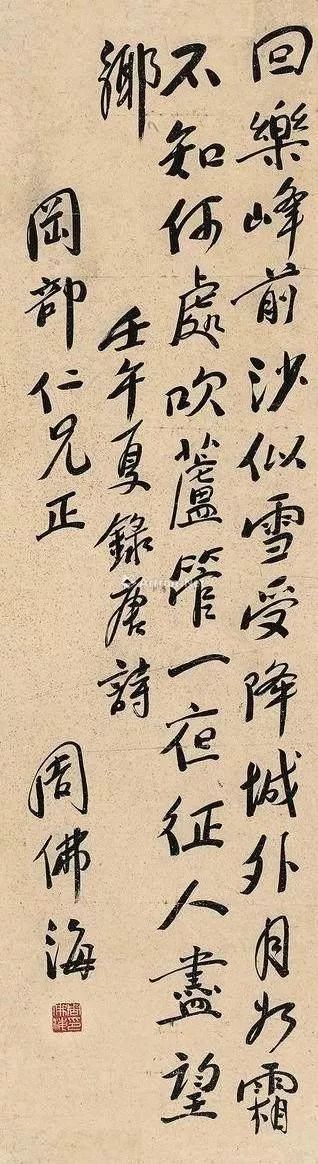 回樂峰前沙似雪受降城外月如霜
不知何處吹蘆管一夜征人盡望
鄉
壬午夏錄唐詩
岡部仁兄正
周佛海